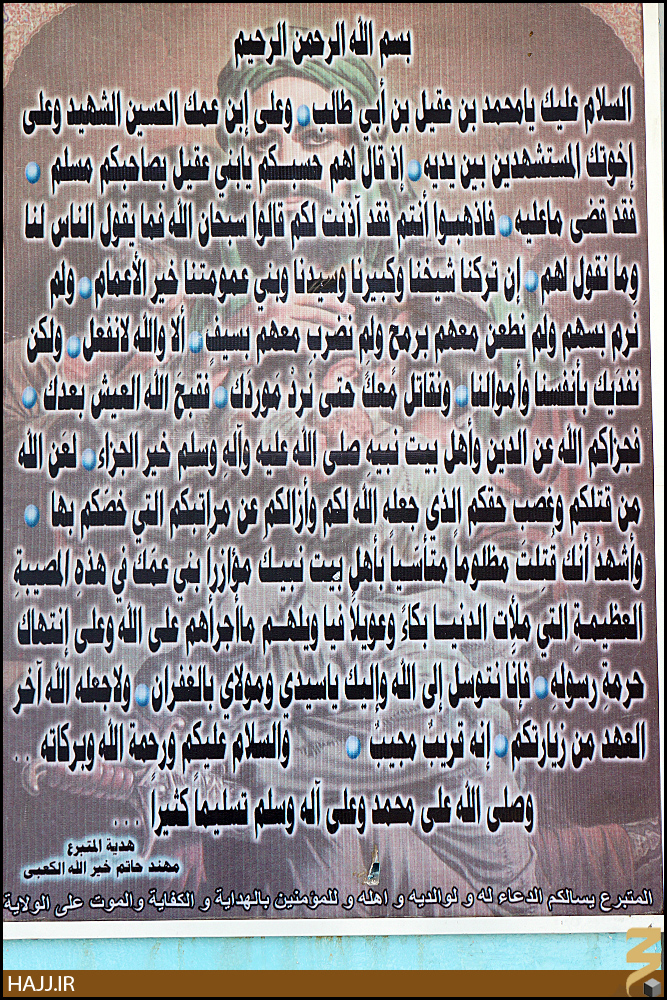 بسم الله الرحمن الرحيم
السلام عليك يامحمد بن عقيل بن أبي طالب وعلى إبن عمك الحسين الشهيد وعلى
إخوتك المستشهدين بين يديه إذ قال لهم حسبكم يابني عقيل بصاحبكم مسلم
فقد قضى ماعليه فاذهبوا أنتم فقد آذنت لكم قالوا سبحان الله فما يقول الناس لنا
وما نقول لهم إن تركنا شيخنا وكبيرنا وسيدنا وبني عمومتنا خير الأعمام ولم
نرم بسهم ولم نطعن معهم برمح ولم نضرب معهم بسيف ألا والله لانفعل ولكن
نفديك بأنفسنا وأموالنا ونقاتل معك حتى نرد موردك فقبح الله العيش بعدك
فجزاكم الله عن الدين وأهل بيت نبيه صلى الله عليه وآله وسلم خير الجزاء لعن الله
من قتلكم وغصب حقكم الذي جعله الله لكم وأزالكم عن مراتبكم التي خصكم بها
وأشهد أنك قتلت مظلوماً متأسياً بأهل بيت نبيك مؤازراً بني عمك في هذه المصيبة
العظيمة التي ملأت الدنيا بكاءً وعويلاً فيا ويلهم ماأجرأهم على الله وعلى إنتهاك
حرمة رسوله فإنا نتوسل إلى الله وإليك ياسيدي ومولاي بالغفران ولاجعله الله آخر
العهد من زيارتكم إنه قريب مجيب والسلام عليكم ورحمة الله وبركاته ..
وصلى الله على محمد وعلى آله وسلم تسليماً كثيراً ...
هدية المتبرع
مهند حاتم خير الله الكعبي
المتبرع يسالكم الدعاء له و لوالديه و اهله و للمؤمنين بالهداية و الكفاية والموت على الولاية
HAJJ.IR